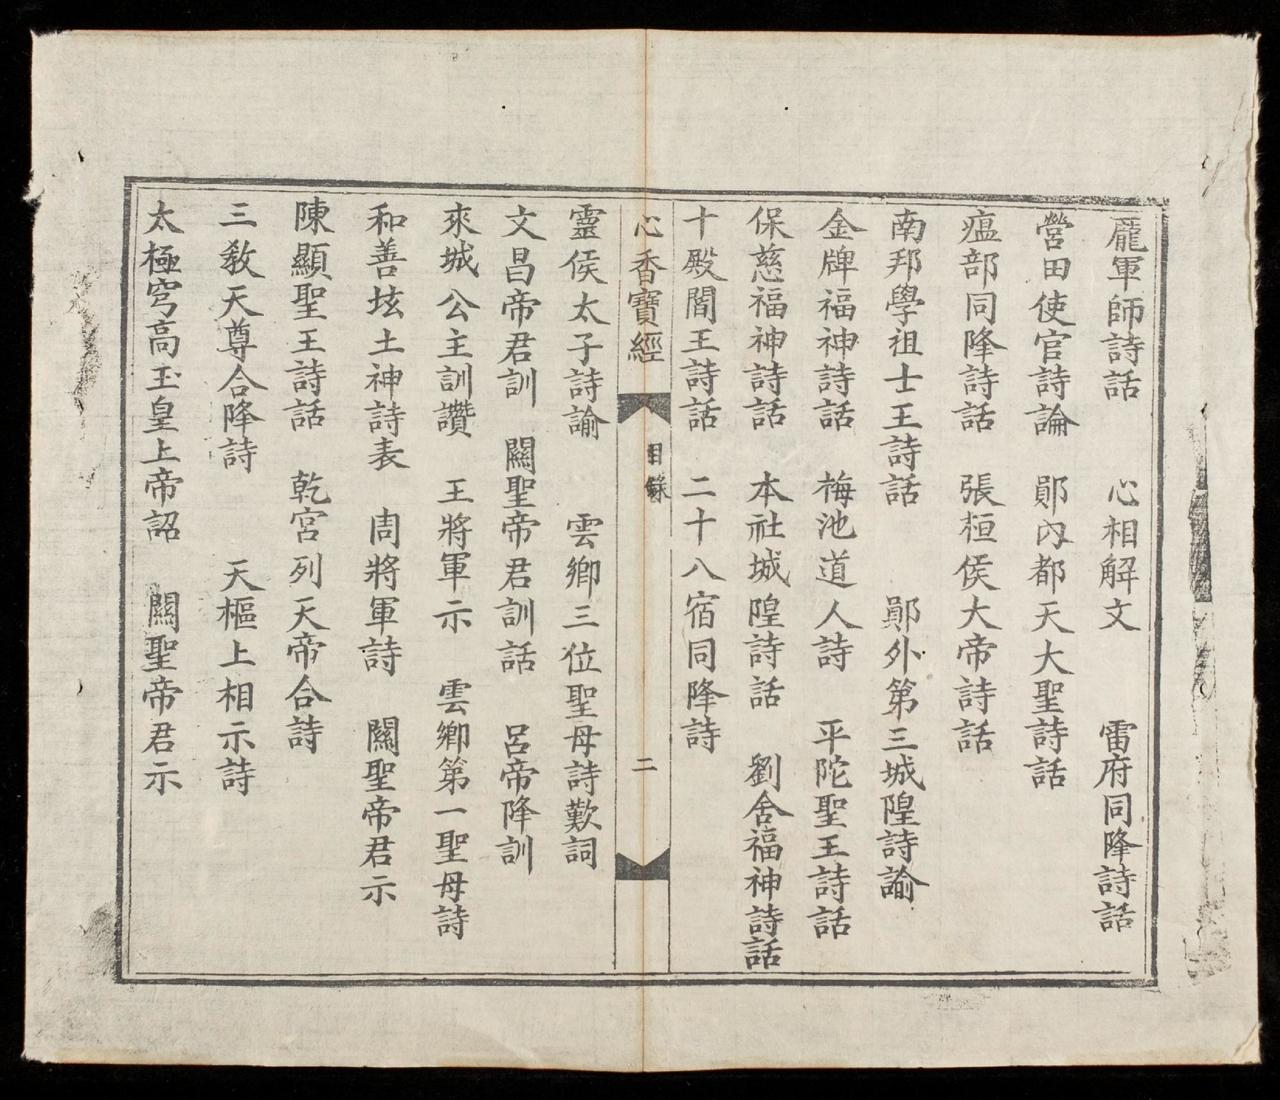 龐軍師詩話　心相解文　雷府同降詩話
營田使官詩論　鄖內都天大聖詩話
瘟部同降詩話　張桓侯大帝詩話
南邦學祖士王詩話　鄖外第三城隍詩諭
金牌福神詩話　梅池道人詩　平陀聖王詩話
保慈福神詩話　本社城隍詩話　劉舍福神詩話
十殿閻王詩話　二十八宿同降詩
心香寶經　目錄　二
靈侯太子詩諭　雲鄉三位聖母詩歎詞
文昌帝君訓　關聖帝君訓話　呂帝降訓
來城公主訓讚　王將軍示　雲鄉第一聖母詩
和善垓土神詩表　周將軍詩　關聖帝君示
陳顯聖王詩話　乾宮列天帝合詩
三教天尊合降詩　天樞上相示詩
太極穹高玉皇上帝詔　關聖帝君示